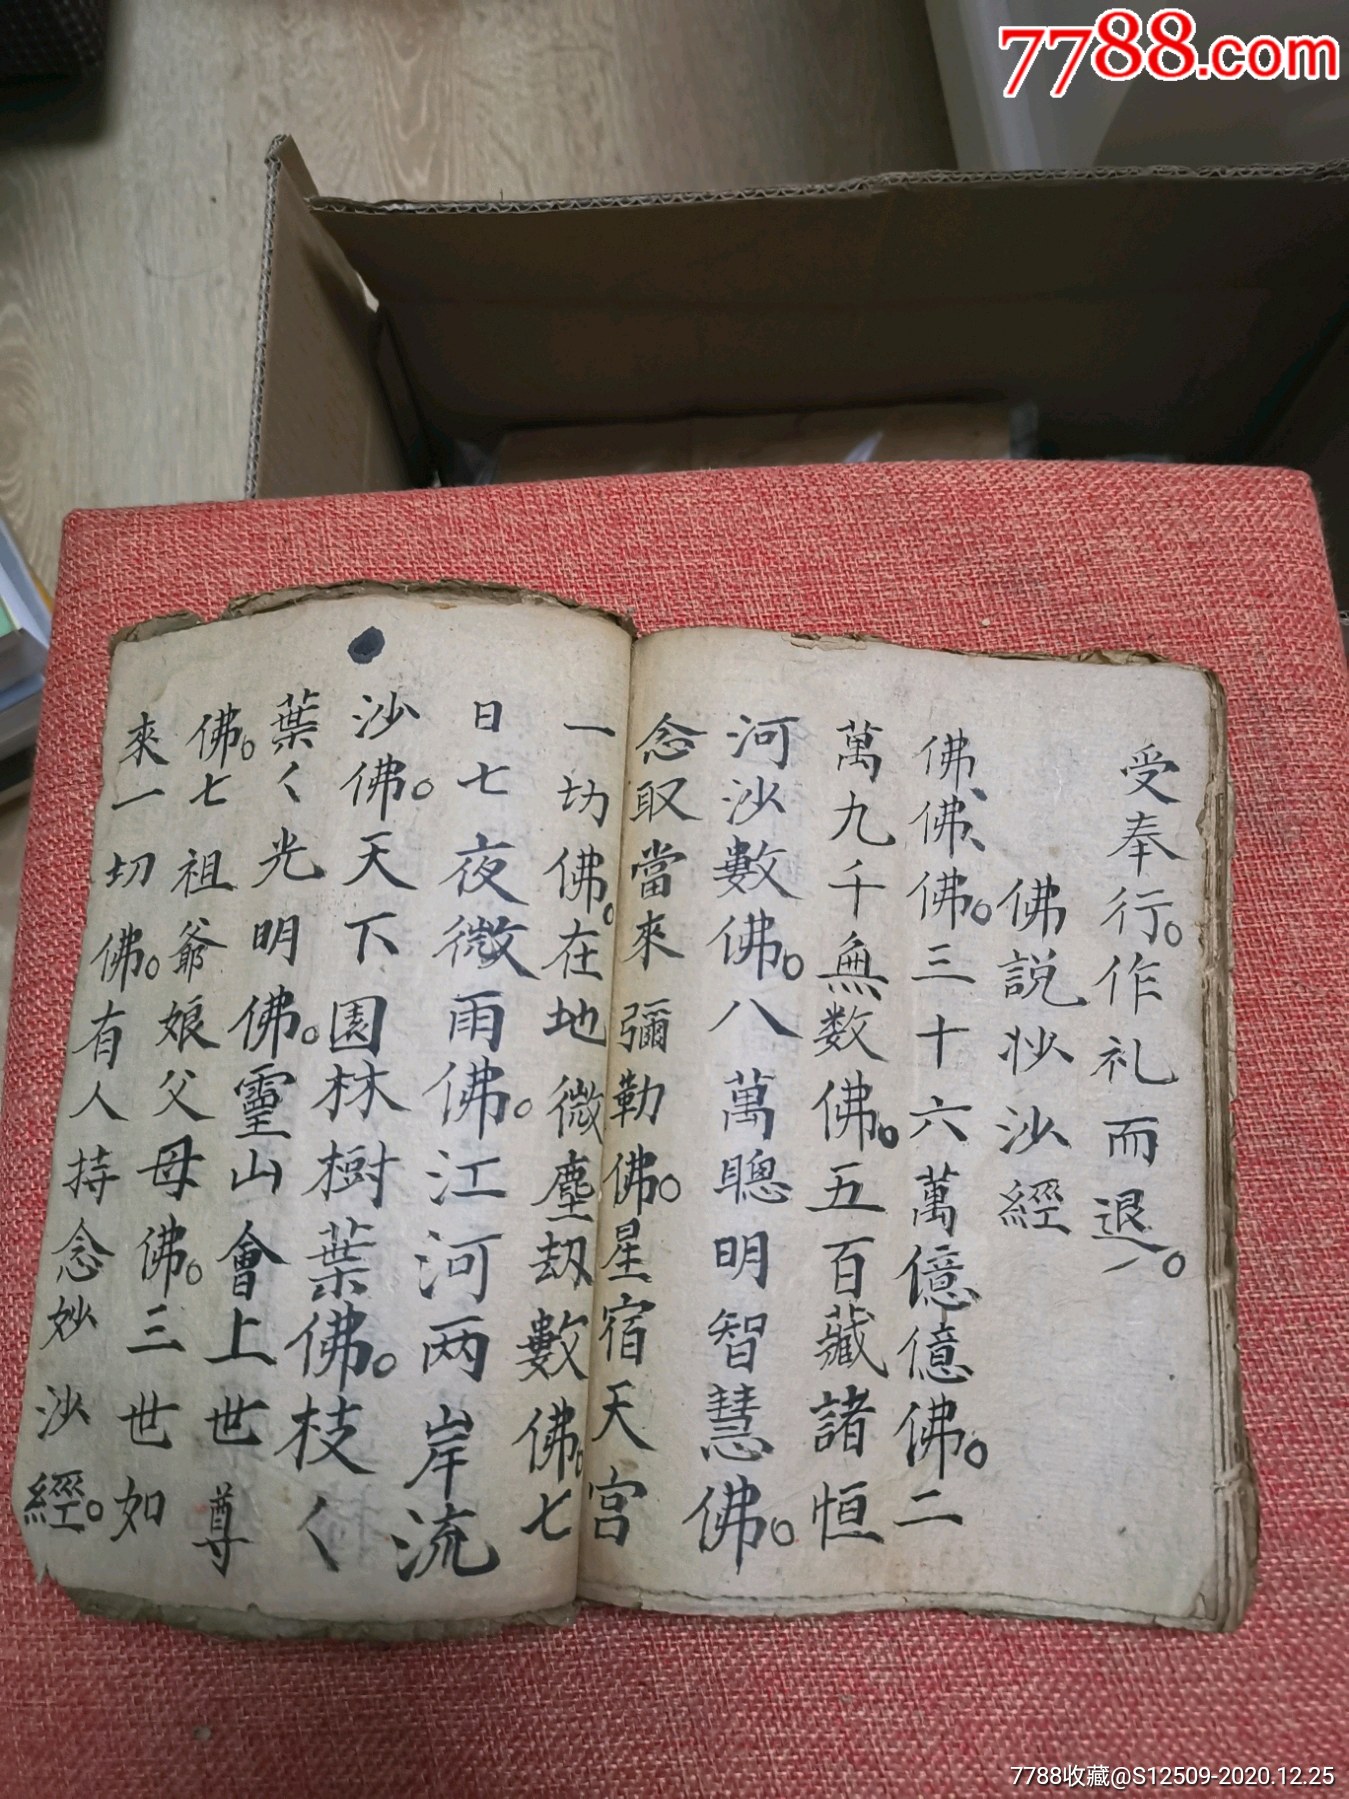 7788.com
受奉行。作礼而退。
佛説妙沙經
佛、佛、佛。三十六萬億億佛。二
萬九千無数佛。五百藏諸恒
河沙數佛。八萬聰明智慧佛。
念取當來彌勒佛。星宿天宮
一切佛。在地微塵刼數佛。七
日七夜微雨佛。江河两岸流
沙佛。天下園林樹葉佛。枝く
葉く光明佛。靈山會上世尊
佛。七祖爺娘父母佛。三世如
來一切佛。有人持念妙沙經。
7788收藏@S12509-2020.12.25